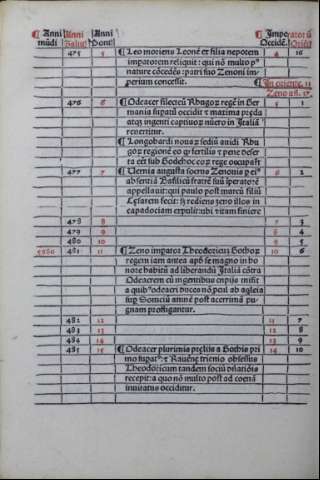 ¶ Anni ¶ Anni ¶ Anni ¶ Imperatorū
mūdi Salutis Pont. Occidē. Oriēt.
475 5 ¶ Leo moriens Leonē et filia nepotem 4 16
imperatorem reliquit: qui nō multo p⁹
nature cōcedēs: patri suo Zenoni im
perium concessit. ¶ In oriente. 11
Zeno añ. 17.
476 6 ¶ Odeacer regē in Ger 5 1
mania supatū occidit et maxima preda
atqꝫ ingenti captiuoꝝ nūero in Italiā
reuertitur.
¶ Longobardi nouas sediū audi Rugo
rū regionē eo qꝫ fertilis et pene deser
ta eēt sub Godehoc eoꝝ rege occupāt
477 7 ¶ Vernia augusta socrus Zenonis ei⁹ 6 2
absentiā Basiliscū fratrē suū īperatorē
appellauit: qui paulo post marcū filiū
Cesarem fecit: sꝫ rediens zeno illos in
capadociam expulit: ubi vitam finiere
478 8 7 3
479 9 8 4
480 10 9 5
5680 481 11 ¶ Zeno imparor Theodoricum Gothoꝝ 10 6
regem iam antea apd se magno in ho
nore habitū ad liberandū Italiā cōtra
Odeacrem cū ingentibus copijs misit
a quib⁹ odeacri duces nō pcul ab agleia
sup Sonciū amnē post acerrimā pu
gnam profligantur.
482 12 11 7
483 13 12 8
484 14 13 9
485 15 ¶ Odeacer plurimis prelijs a Gothis pri 14 10
mo supat⁹: et Rauēne triennio obsessus
Theodoricum tandem sociū
recepit: a quo nō multo post ad coenā
inuitatus occiditur.